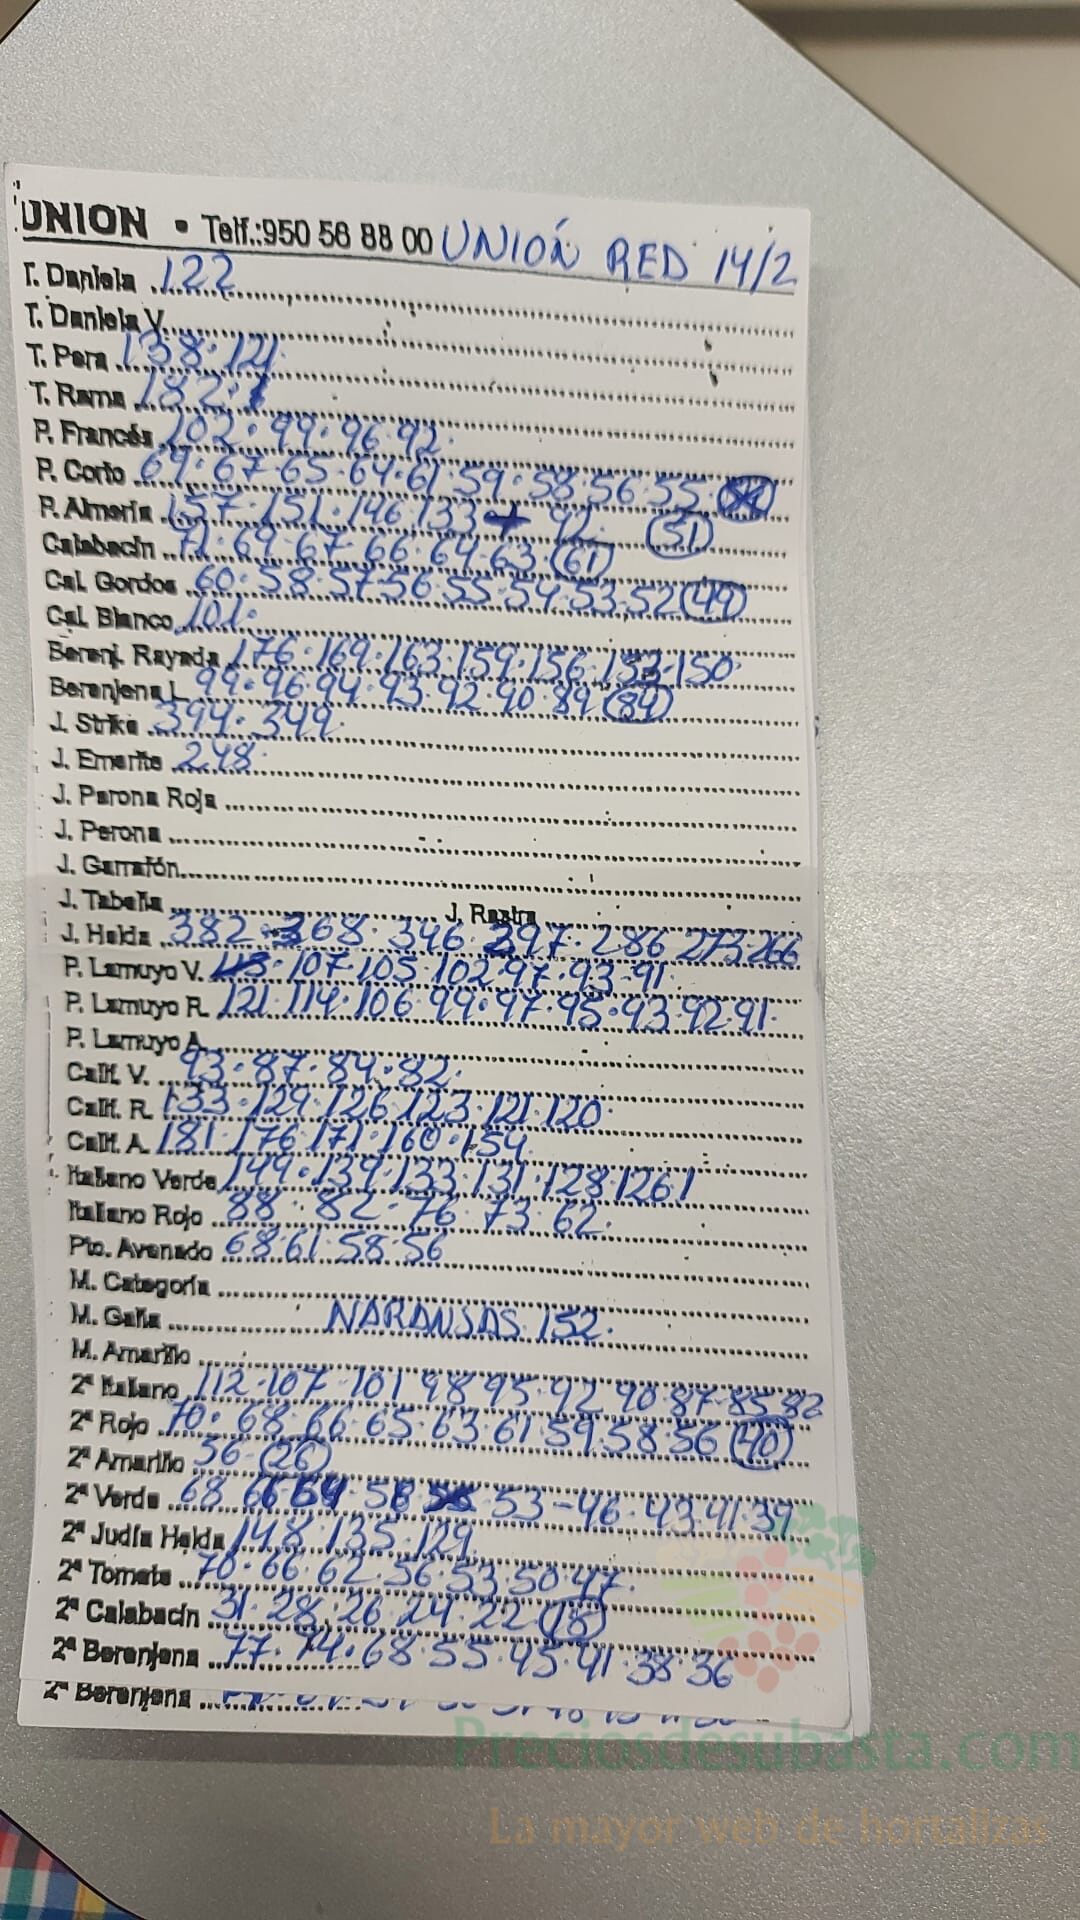 UNION • Telf.:950 56 88 00 UNIÓN RED 14/2
T. Daniela 122
T. Daniela V.
T. Pera 138·121
T. Rama 182·
P. Francés 102·99·96·92·
P. Corto 69·67·65·64·61·59·58·56·55·
P. Almería 157·151·146·133 92· (51)
Calabacín 71·69·67·66·64·63·(61)
Cal. Gordos 60·58·57·56·55·54·53·52(49)
Cal. Blanco 101·
Berenj. Rayada 176·169·163·159·156·153·150·
Berenjena L 99·96·94·93·92·90·89(84)
J. Strike 394·349·
J. Emerite 248·
J. Perona Roja
J. Perona
J. Garrafón
J. Tabella J. Rastra
J. Helda 382·368·346·297·286·273·266
P. Lamuyo V. 113·107·105·102·97·93·91·
P. Lamuyo R. 121·114·106·99·97·95·93·92·91·
P. Lamuyo A.
Calif. V. 93·87·84·82·
Calif. R. 133·129·126·123·121·120·
Calif. A. 181·176·171·160·154
Italiano Verde 149·139·133·131·128·126·
Italiano Rojo 88·82·76·73·62·
Pto. Avenado 68·61·58·56
M. Categoría
M. Galia NARANJAS 152·
M. Amarillo
2ª Italiano 112·107·101 98 95·92 90·87·85·82
2ª Rojo 70·68·66·65·63·61·59·58·56 (40)
2ª Amarillo 56·(26)
2ª Verde 68 66 64·58 53-46·43·41·39
2ª Judía Helda 148·135·129
2ª Tomate 70·66·62·56·53·50·47·
2ª Calabacín 31·28·26·24·22(18)
2ª Berenjena 77·74·68·55·45·41·38·36
2ª Berenjena
Preciosdesubasta.com
La mayor web de hortalizas